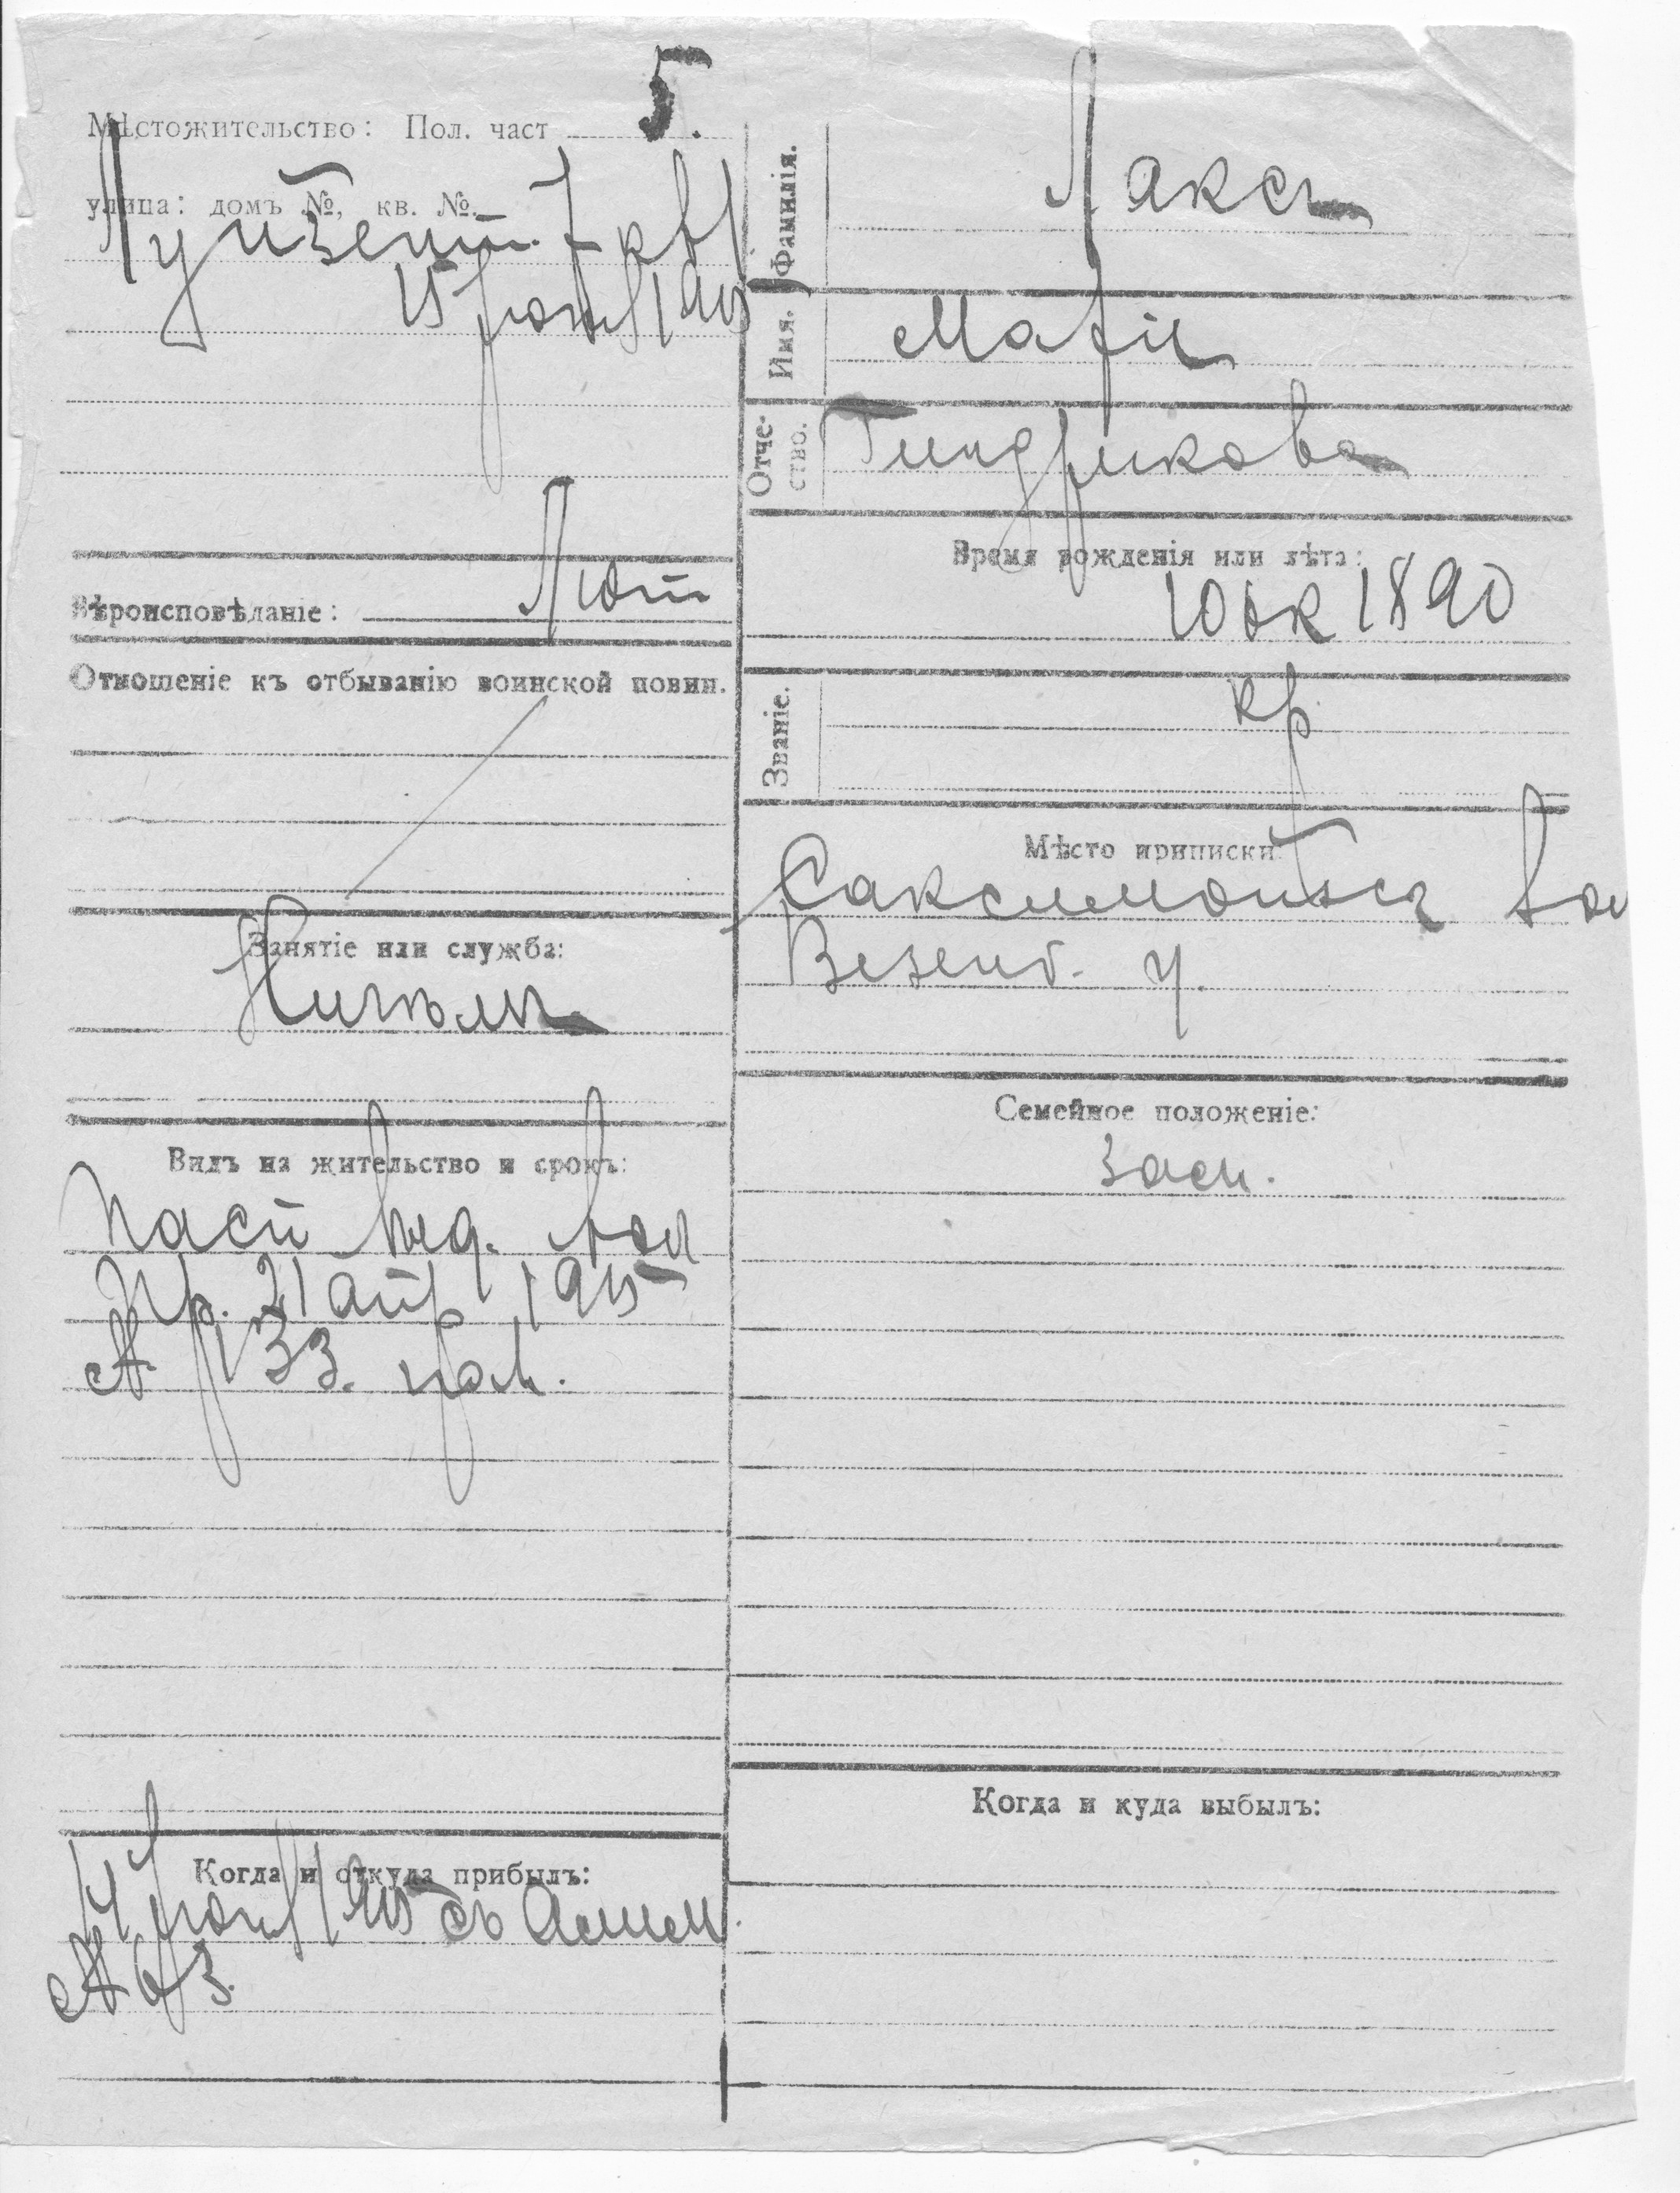 Мѣстожительство: Пол. част 5.
улица: домъ №, кв. №
Луизент. 7 кв 1
15 1915
Вѣроисповѣданіе: Лют
Отношеніе къ отбыванію воинской повин.
Занятіе или служба:
Видъ на жительство и срокъ:
Пасп выд. вол
пр. 21 апр 1915
№ 133.
Когда и откуда прибылъ:
1915 съ
№ 63.
Фамилія. Лаксъ
Имя. Марія
Отче-
ство. Гиндрикова
Время рожденія или лѣта:
10 ок 1890
Званіе. кр
Мѣсто приписки:
Везенб. у.
Семейное положеніе:
Когда и куда выбылъ: